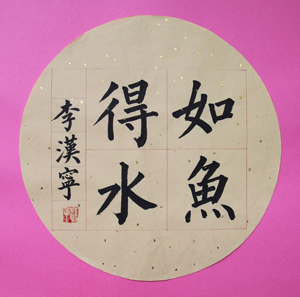 如魚
得水
李漢寧